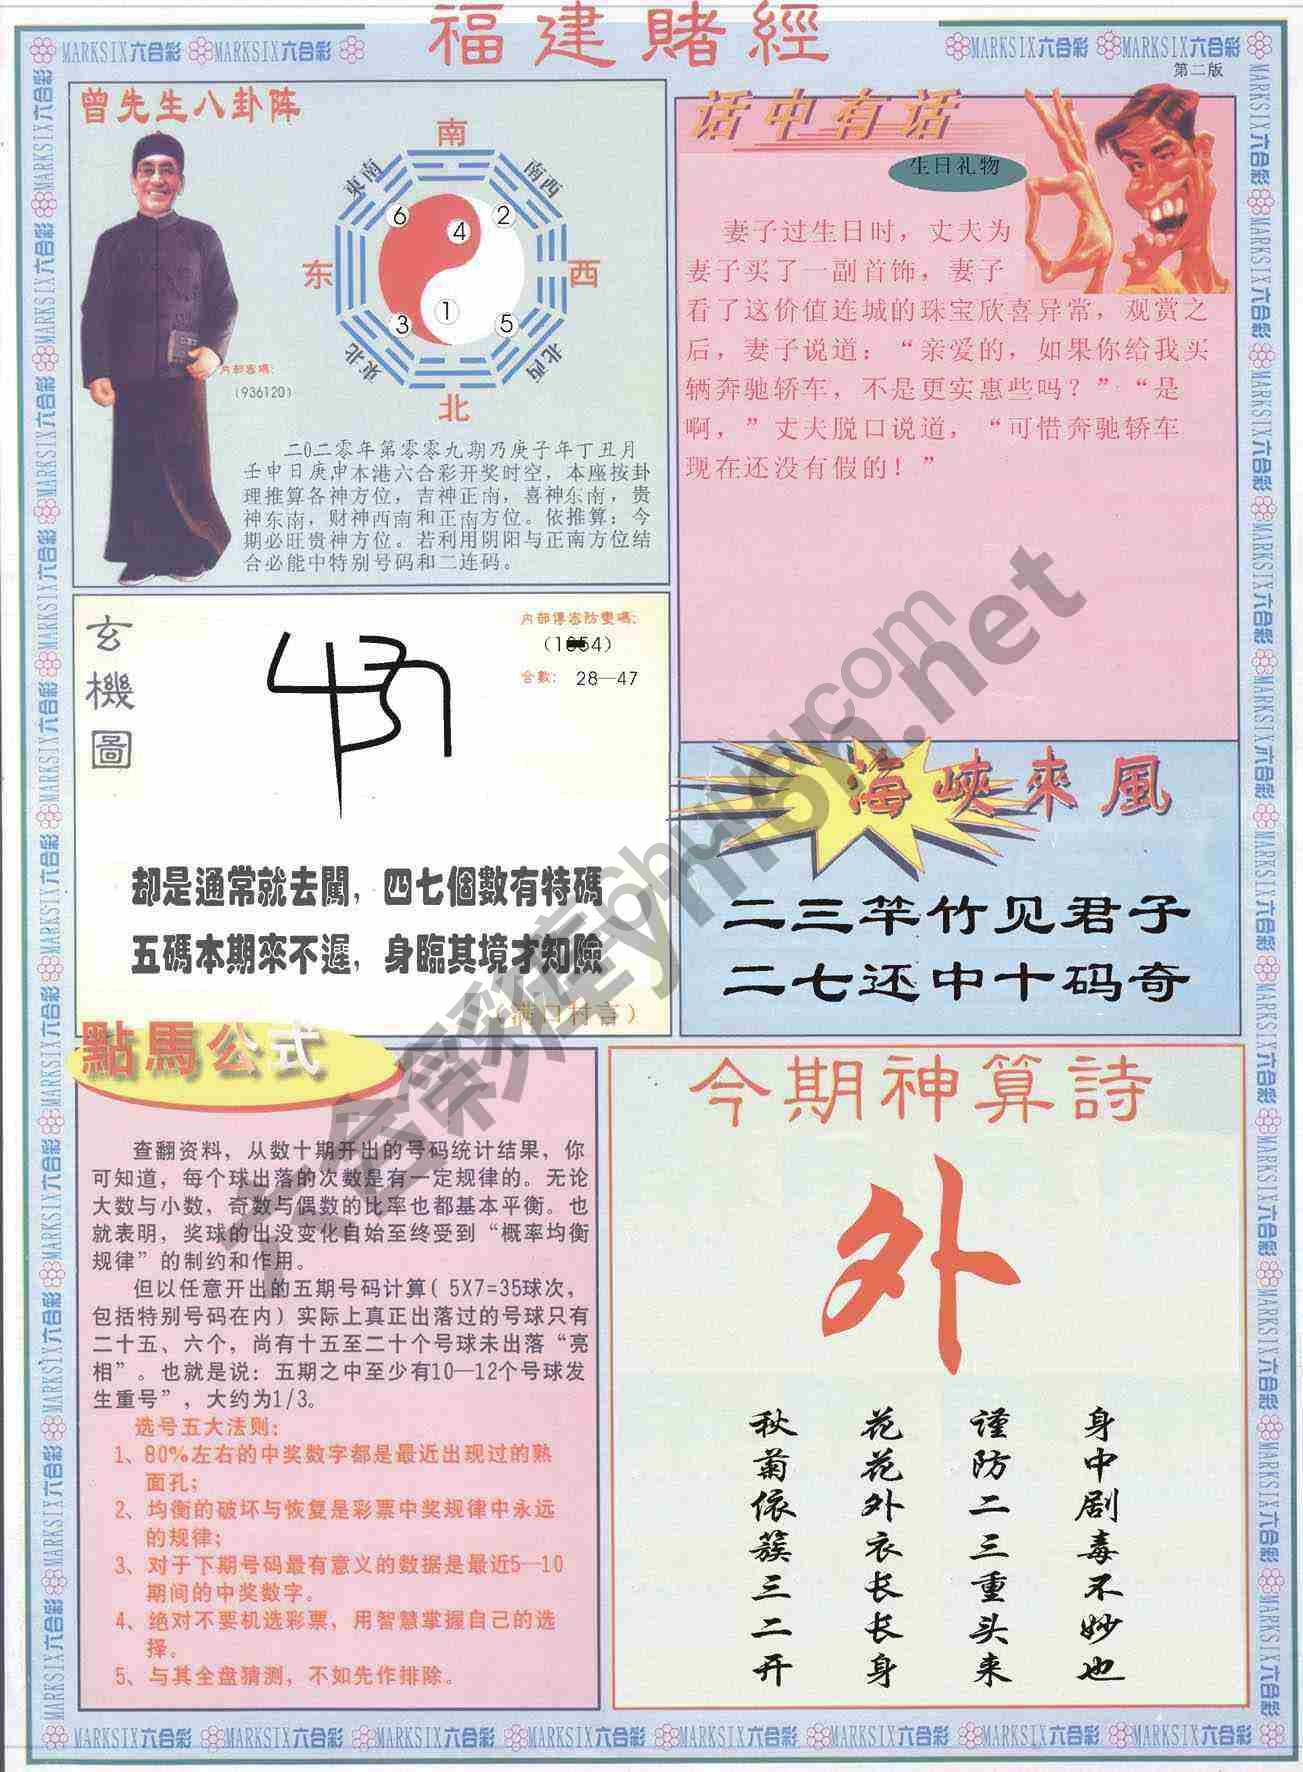 福建賭經
MARKSIX六合彩 MARKSIX六合彩
MARKSIX六合彩 MARKSIX六合彩
第二版
曾先生八卦阵
南
東南
南西
6
4
2
东
西
3
1
5
東北
北西
北
内部密碼:
(936120)
二〇二零年第零零九期乃庚子年丁丑月
壬申日庚申本港六合彩开奖时空，本座按卦
理推算各神方位，吉神正南，喜神东南，贵
神东南，财神西南和正南方位。依推算：今
期必旺贵神方位。若利用阴阳与正南方位结
合必能中特别号码和二连码。
话中有话
生日礼物
妻子过生日时，丈夫为
妻子买了一副首饰，妻子
看了这价值连城的珠宝欣喜异常，观赏之
后，妻子说道：“亲爱的，如果你给我买
辆奔驰轿车，不是更实惠些吗？”“是
啊，”丈夫脱口说道，“可惜奔驰轿车
现在还没有假的！”
玄機圖
内部傳密防變碼:
合數: 28—47
却是通常就去闖，四七個數有特碼
五碼本期來不遲，身臨其境才知險
海峽來風
二三竿竹见君子
二七还中十码奇
點馬公式
查翻资料，从数十期开出的号码统计结果，你
可知道，每个球出落的次数是有一定规律的。无论
大数与小数，奇数与偶数的比率也都基本平衡。也
就表明，奖球的出没变化自始至终受到“概率均衡
规律”的制约和作用。
但以任意开出的五期号码计算( 5X7=35球次，
包括特别号码在内）实际上真正出落过的号球只有
二十五、六个，尚有十五至二十个号球未出落“亮
相”。也就是说：五期之中至少有10—12个号球发
生重号”，大约为1/3。
选号五大法则：
1、80%左右的中奖数字都是最近出现过的熟
面孔；
2、均衡的破坏与恢复是彩票中奖规律中永远
的规律；
3、对于下期号码最有意义的数据是最近5—10
期间的中奖数字。
4、绝对不要机选彩票，用智慧掌握自己的选
择。
5、与其全盘猜测，不如先作排除。
今期神算詩
外
身中剧毒不妙也
谨防二三重头来
花花外衣长长身
秋菊依簇三二开